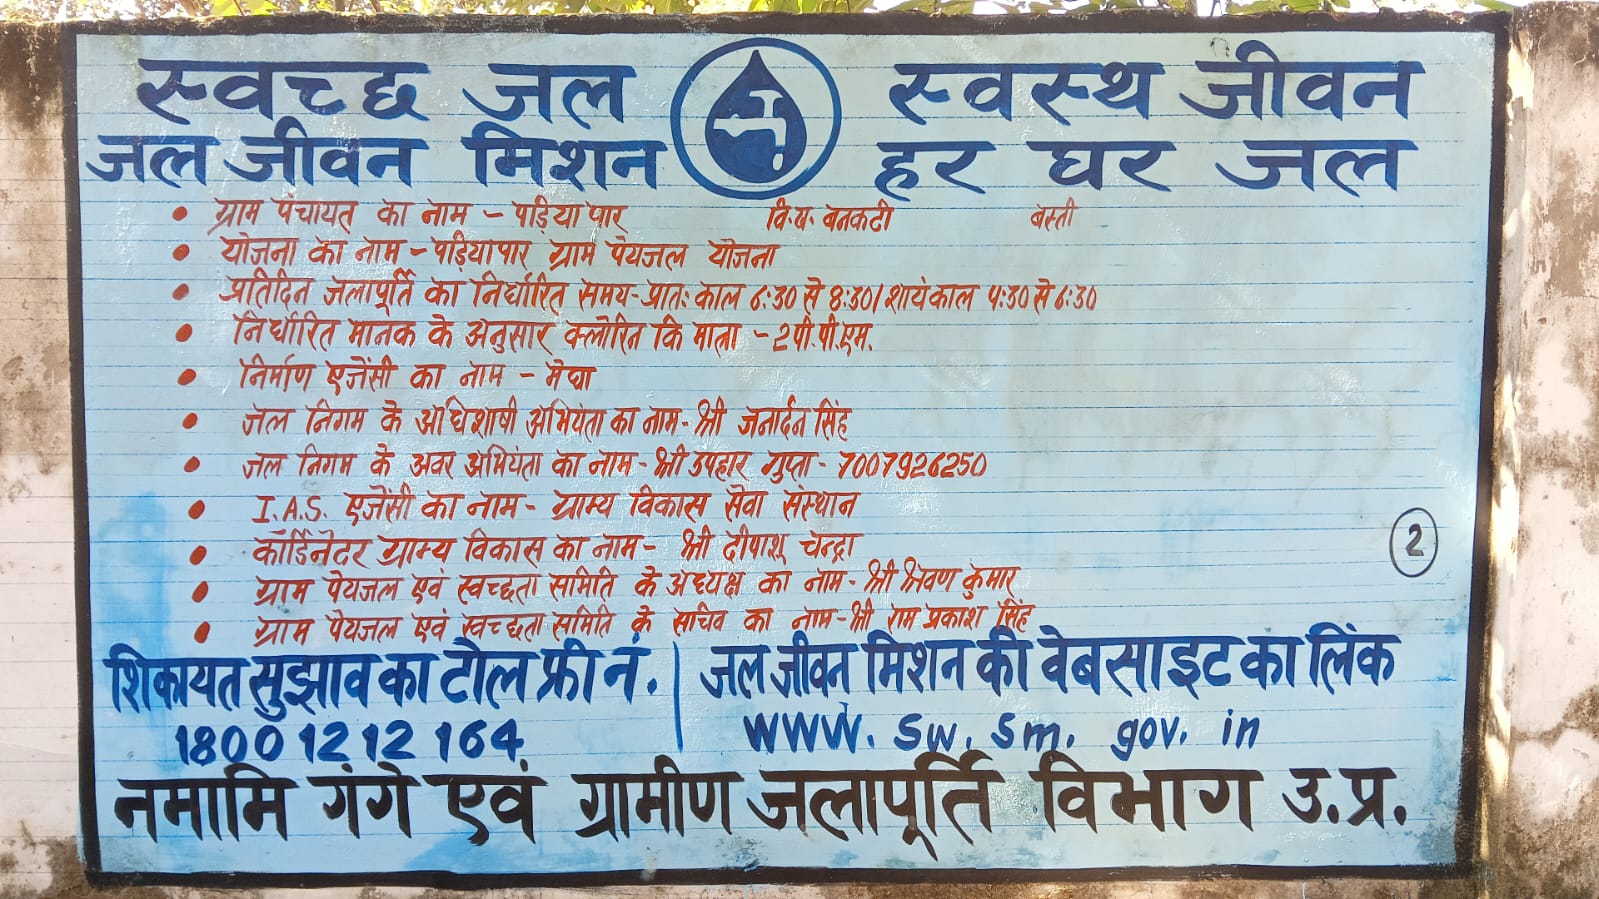 स्वच्छ जल स्वस्थ जीवन
जल जीवन मिशन हर घर जल
• ग्राम पंचायत का नाम - पड़िया पार वि.ख. बनकटी बस्ती
• योजना का नाम - पड़ियापार ग्राम पेयजल योजना
• प्रतिदिन जलापूर्ति का निर्धारित समय - प्रात: काल ६:३० से ८:३०/ शायंकाल ५:३० से ६:३०
• निर्धारित मानक के अनुसार क्लोरिन कि मात्रा - २ पी.पी.एम.
• निर्माण एजेंसी का नाम - मेघा
• जल निगम के अधिशाषी अभियंता का नाम - श्री जनार्दन सिंह
• जल निगम के अवर अभियंता का नाम - श्री उपहार गुप्ता - 7007926250
• I.A.S. एजेंसी का नाम - ग्राम्य विकास सेवा संस्थान
• कॉर्डिनेटर ग्राम्य विकास का नाम - श्री दीपाशू चन्द्रा
• ग्राम पेयजल एवं स्वच्छता समिति के अध्यक्ष का नाम - श्री श्रवण कुमार
• ग्राम पेयजल एवं स्वच्छता समिति के सचिव का नाम - श्री राम प्रकाश सिंह
2
शिकायत सुझाव का टौल फ्री नं. | जल जीवन मिशन की वेबसाइट का लिंक
1800 12 12 164 WWW. sw. sm. gov. in
नमामि गंगे एवं ग्रामीण जलापूर्ति विभाग उ.प्र.